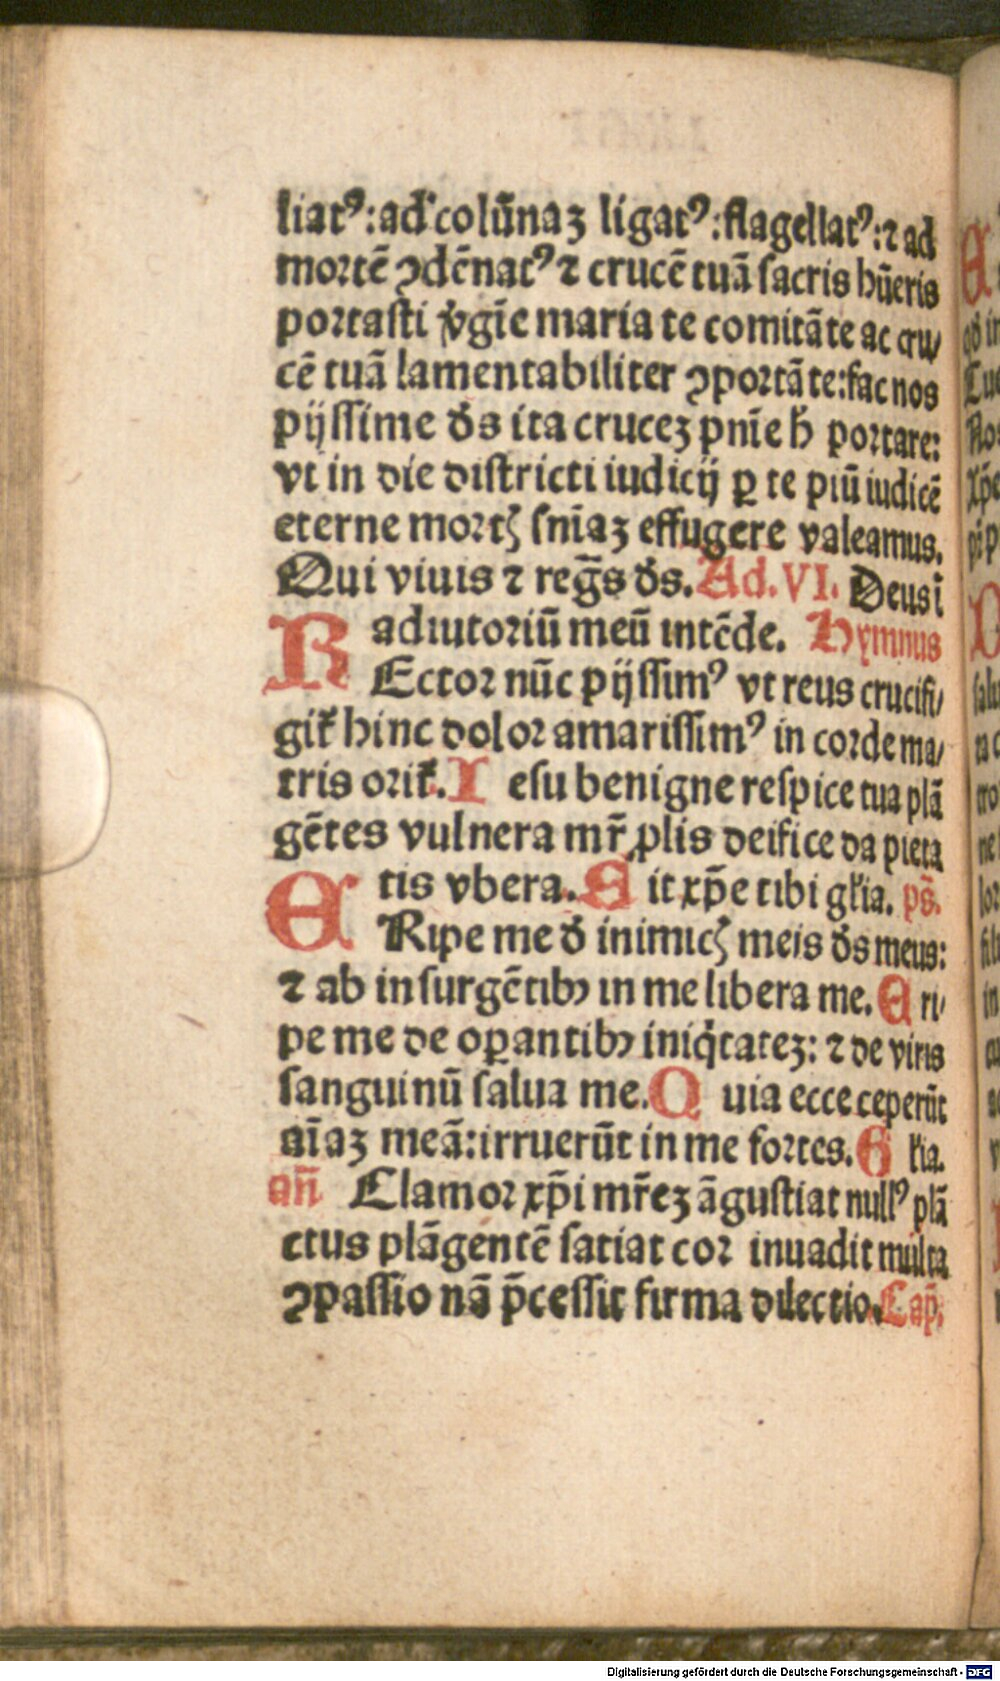 liatꝰ: ad colūnaʒ ligatꝰ: flagellatꝰ: ⁊ ad
mortē ꝯdēnatꝰ ⁊ crucē tuā sacris hūeris
portasti v̾gīe maria te comitāte ac cru/
cē tuā lamentabiliter ꝯportāte: fac nos
pijssime ds̄ ita cruceʒ pnīe h̄ portare:
vt in die districti iudicij ꝑ te piū iudicē
eterne mortꝭ snīaʒ effugere valeamus.
Qui viuis ⁊ reḡs ds̄. Ad. VI. Deus ī
adiutoriū meū intēde. Hymnus
REctor nūc pijssimꝰ vt reus crucifi/
git᷑ hinc dolor amarissimꝰ in corde ma/
tris orit᷑. I esu benigne respice tua plā
gētes vulnera mr̄ ꝓlis deifice da pieta
tis vbera. S it xp̄e tibi gl̄ia. ps̄.
ERipe me d̄ inimicꝭ meis ds̄ meus:
⁊ ab insurgētibꝫ in me libera me. E ri/
pe me de oꝑantibꝫ iniq̇tateʒ: ⁊ de viris
sanguinū salua me. Q uia ecce ceperūt
aīaʒ meā: irruerūt in me fortes. G l̄ia.
an̄ Clamor xp̄i mr̄eʒ āgustiat nullꝰ plā
ctus plāgentē satiat cor inuadit multa
ꝯpassio nā p̄cessit firma dilectio. Cap̄.
Digitalisierung gefördert durch die Deutsche Forschungsgemeinschaft - DFG